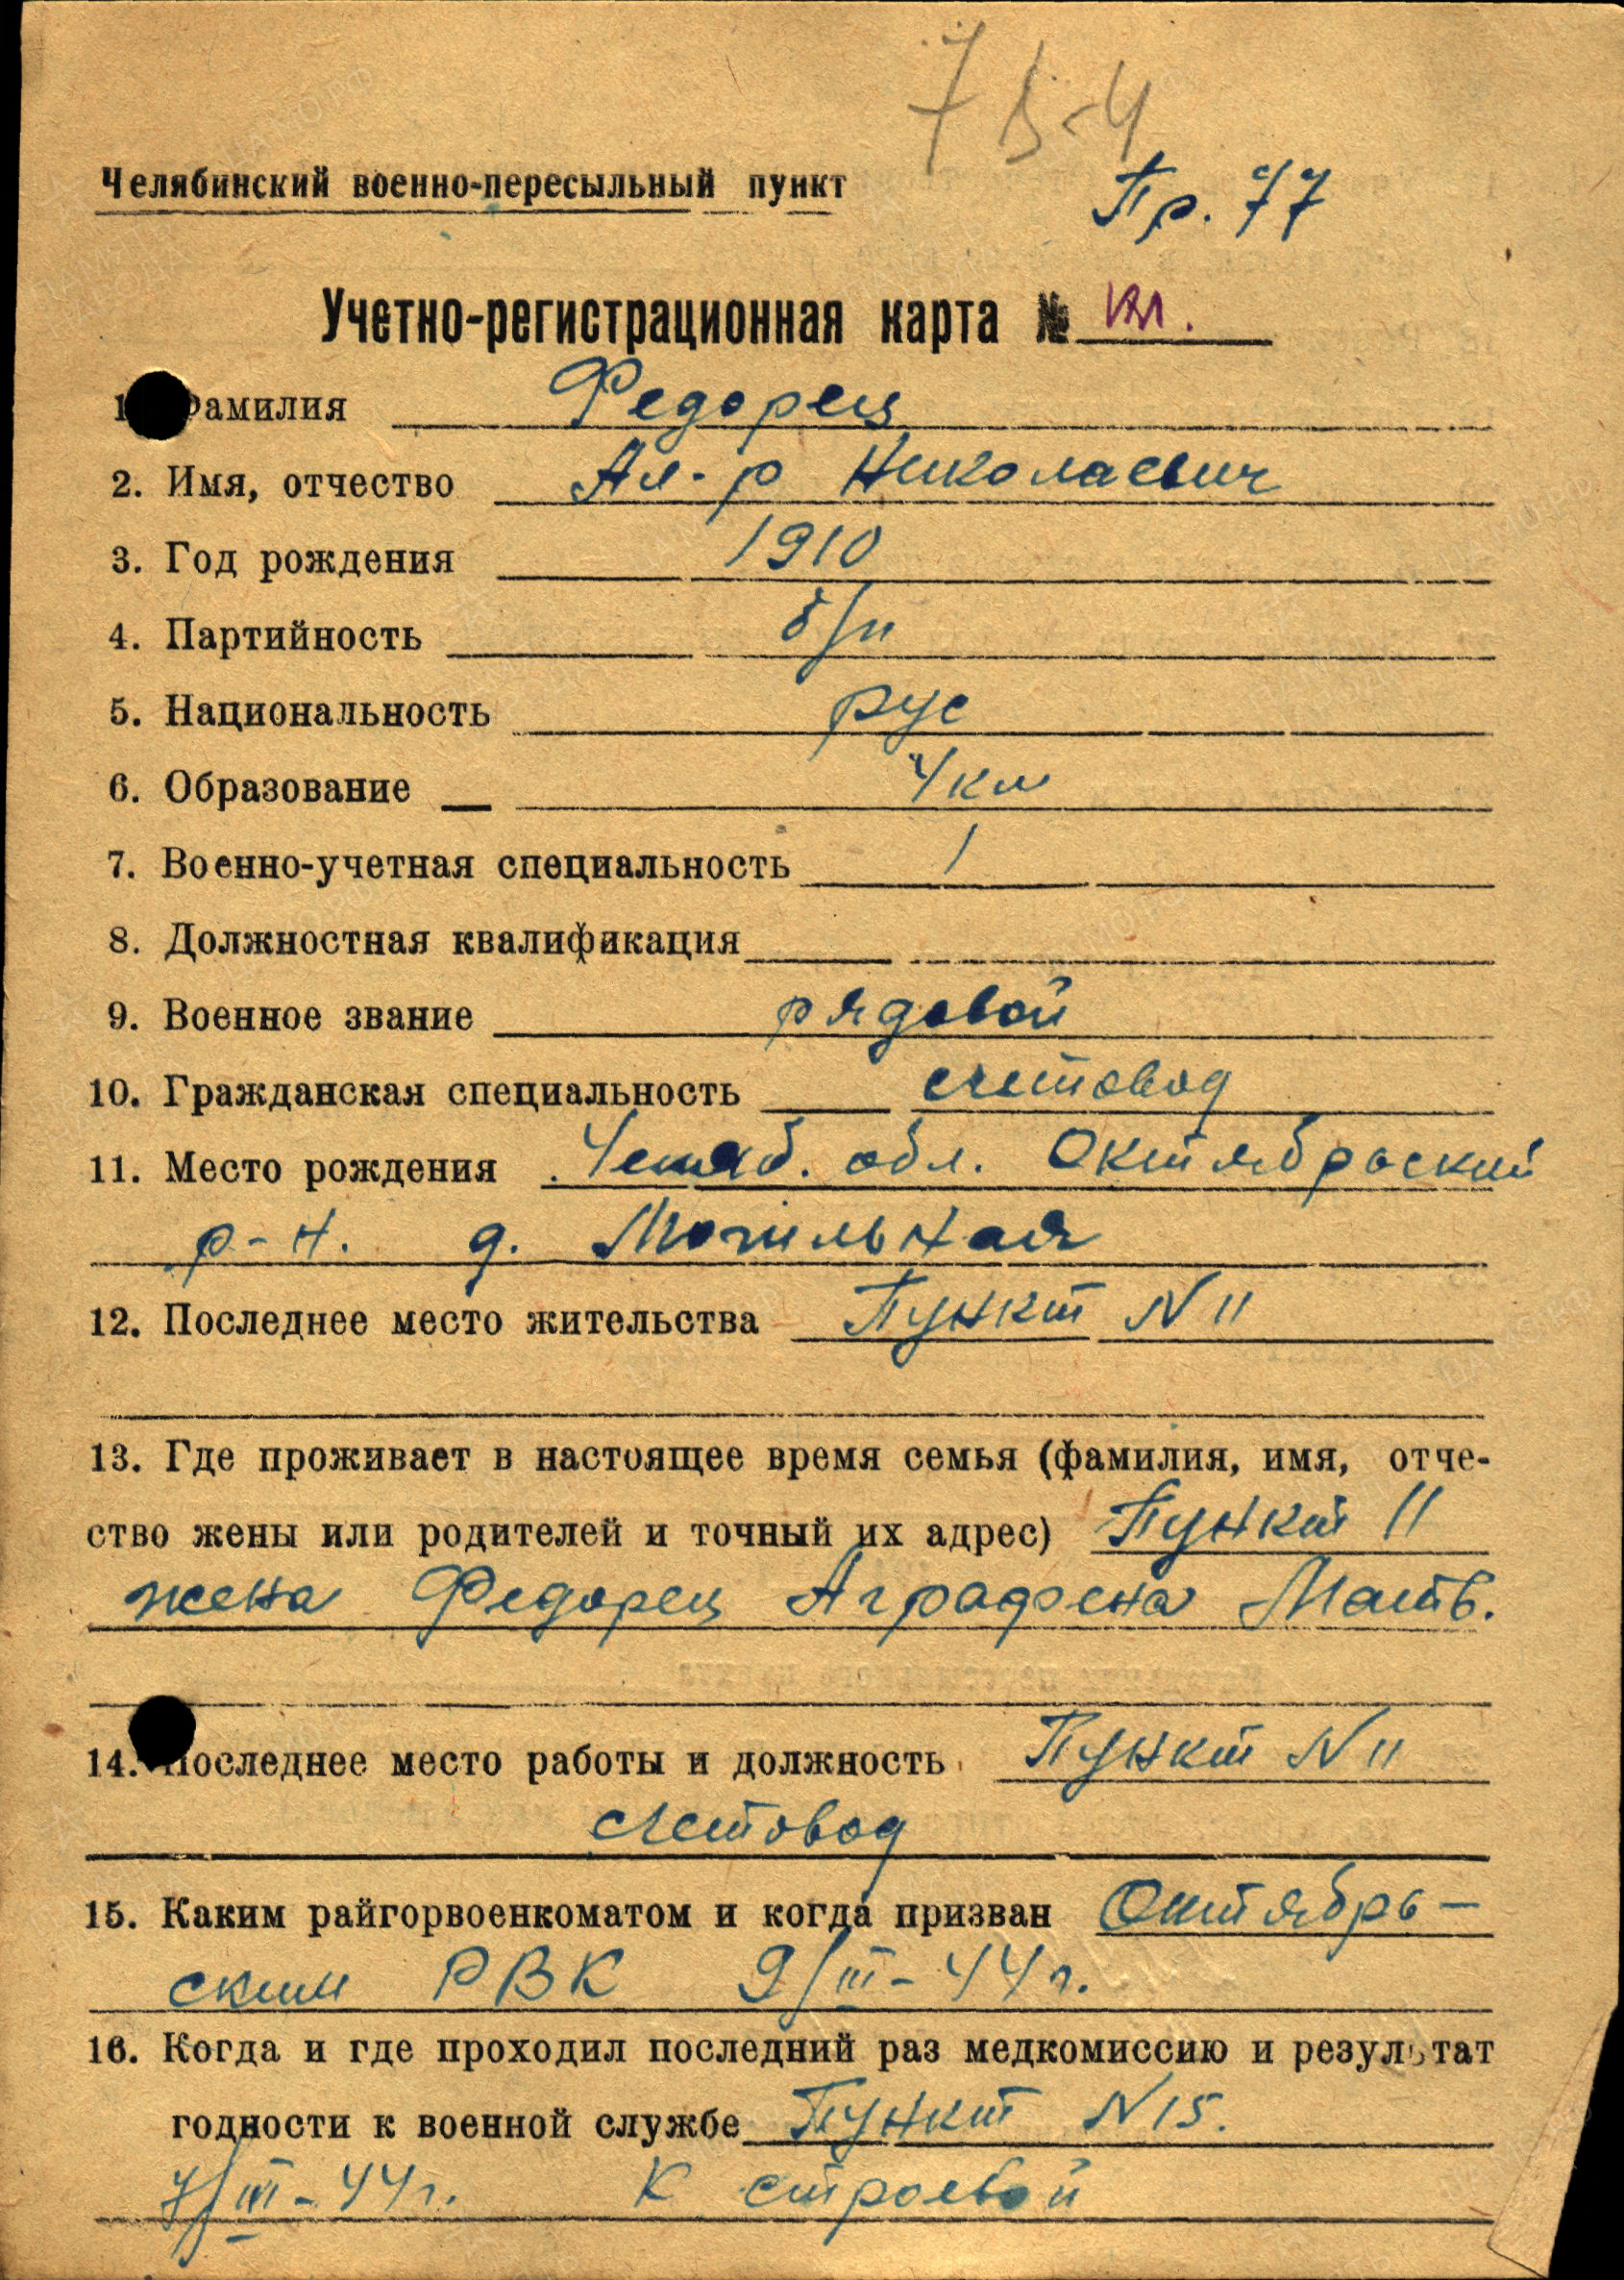 Челябинский военно-пересыльный пункт
Пр. 77
Учетно-регистрационная карта №
1. Фамилия Федорец
2. Имя, отчество Ал-р Николаевич
3. Год рождения 1910
4. Партийность б/п
5. Национальность рус
6. Образование 4 кл
7. Военно-учетная специальность 1
8. Должностная квалификация
9. Военное звание рядовой
10. Гражданская специальность счетовод
11. Место рождения Челяб. обл. Октябрьский
р-н. д. Могильная
12. Последнее место жительства Пункт N 11
13. Где проживает в настоящее время семья (фамилия, имя, отче-
ство жены или родителей и точный их адрес) Пункт 11
жена Федорец Аграфена Матв.
14. Последнее место работы и должность Пункт N 11
счетовод
15. Каким райгорвоенкоматом и когда призван Октябрь-
ским РВК 9/III-44 г.
16. Когда и где проходил последний раз медкомиссию и результат
годности к военной службе Пункт N 15.
7/III-44 г. К строевой